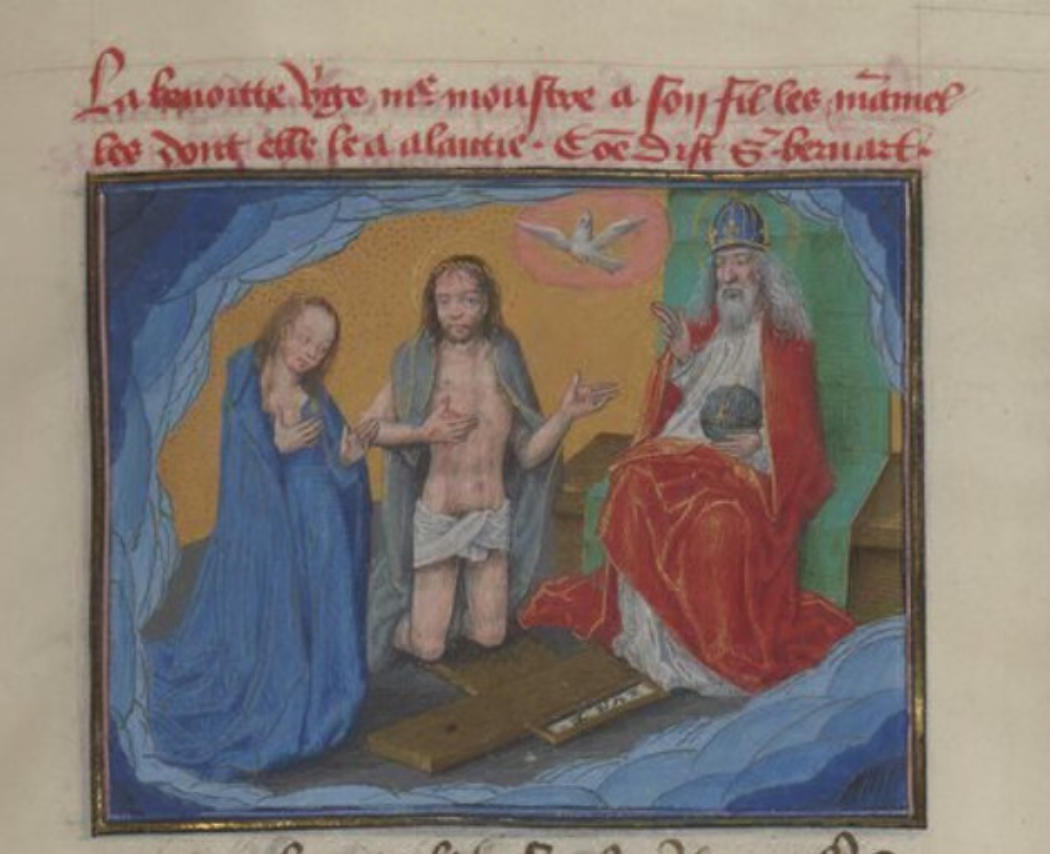 La benoitte v̾ge m̄e monstre a son fil les mamel
les dont elle le a alaittie. Cōe dist S. bernart.